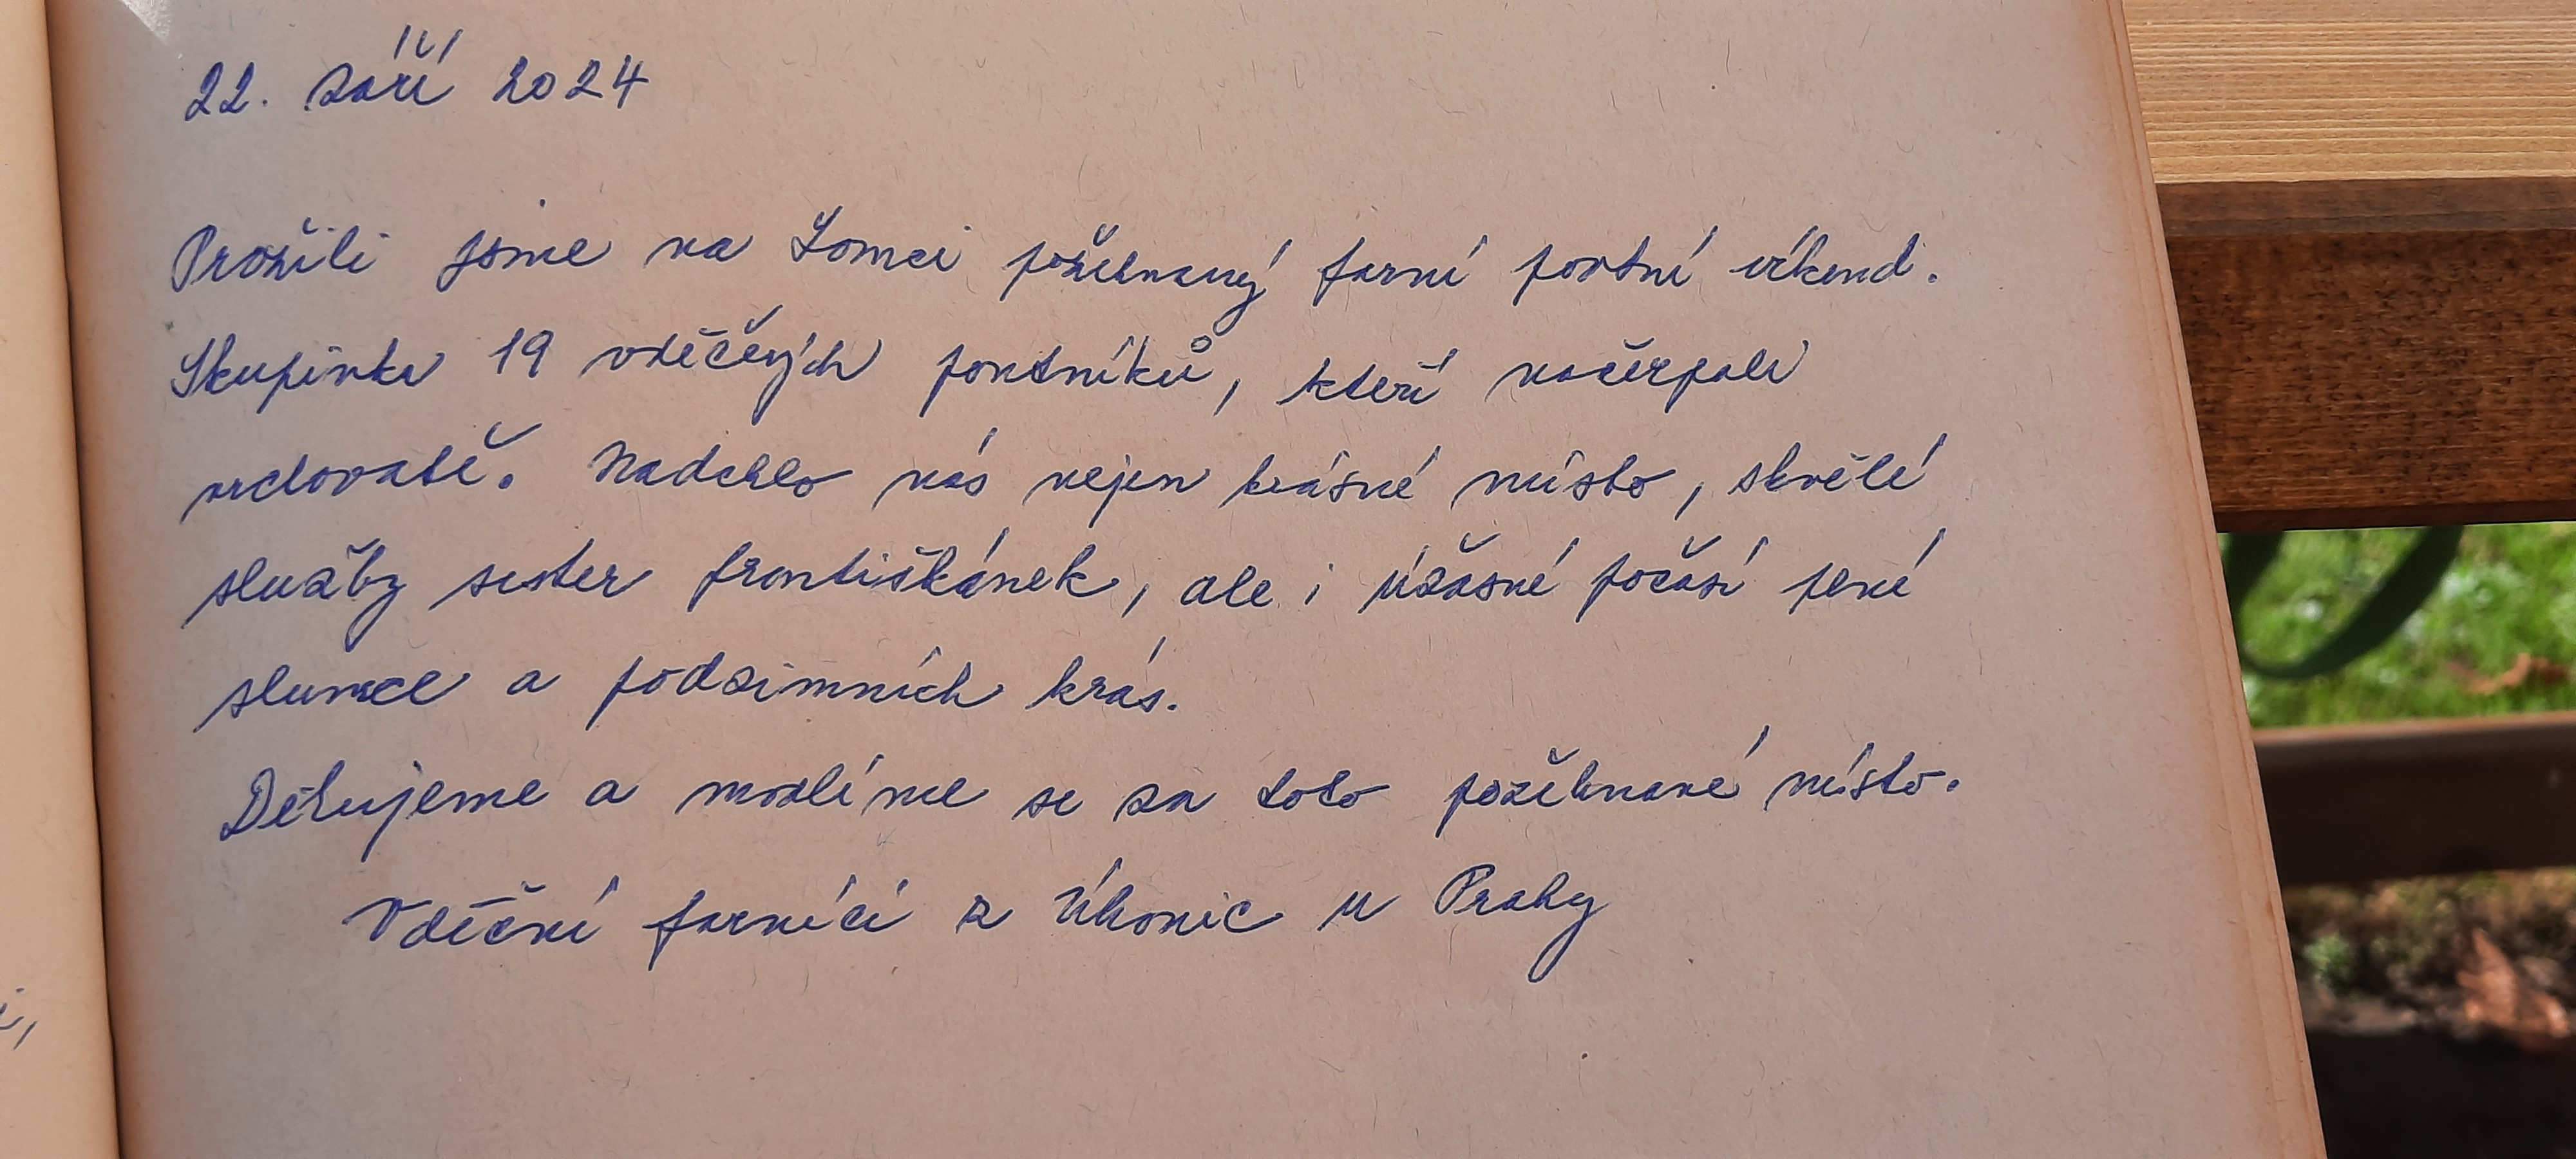 22. září 2024
Prožili jsme na Lomci požehnaný farní postní víkend.
Skupinka 19 vděčných postníků, kteří načerpali
vrchovatě. Nadchlo nás nejen krásné místo, skvělé
služby sester františkánek, ale i úžasné počasí plné
slunce a podzimních krás.
Děkujeme a modlíme se za toto požehnané místo.
Vděční farníci z Úhonic u Prahy